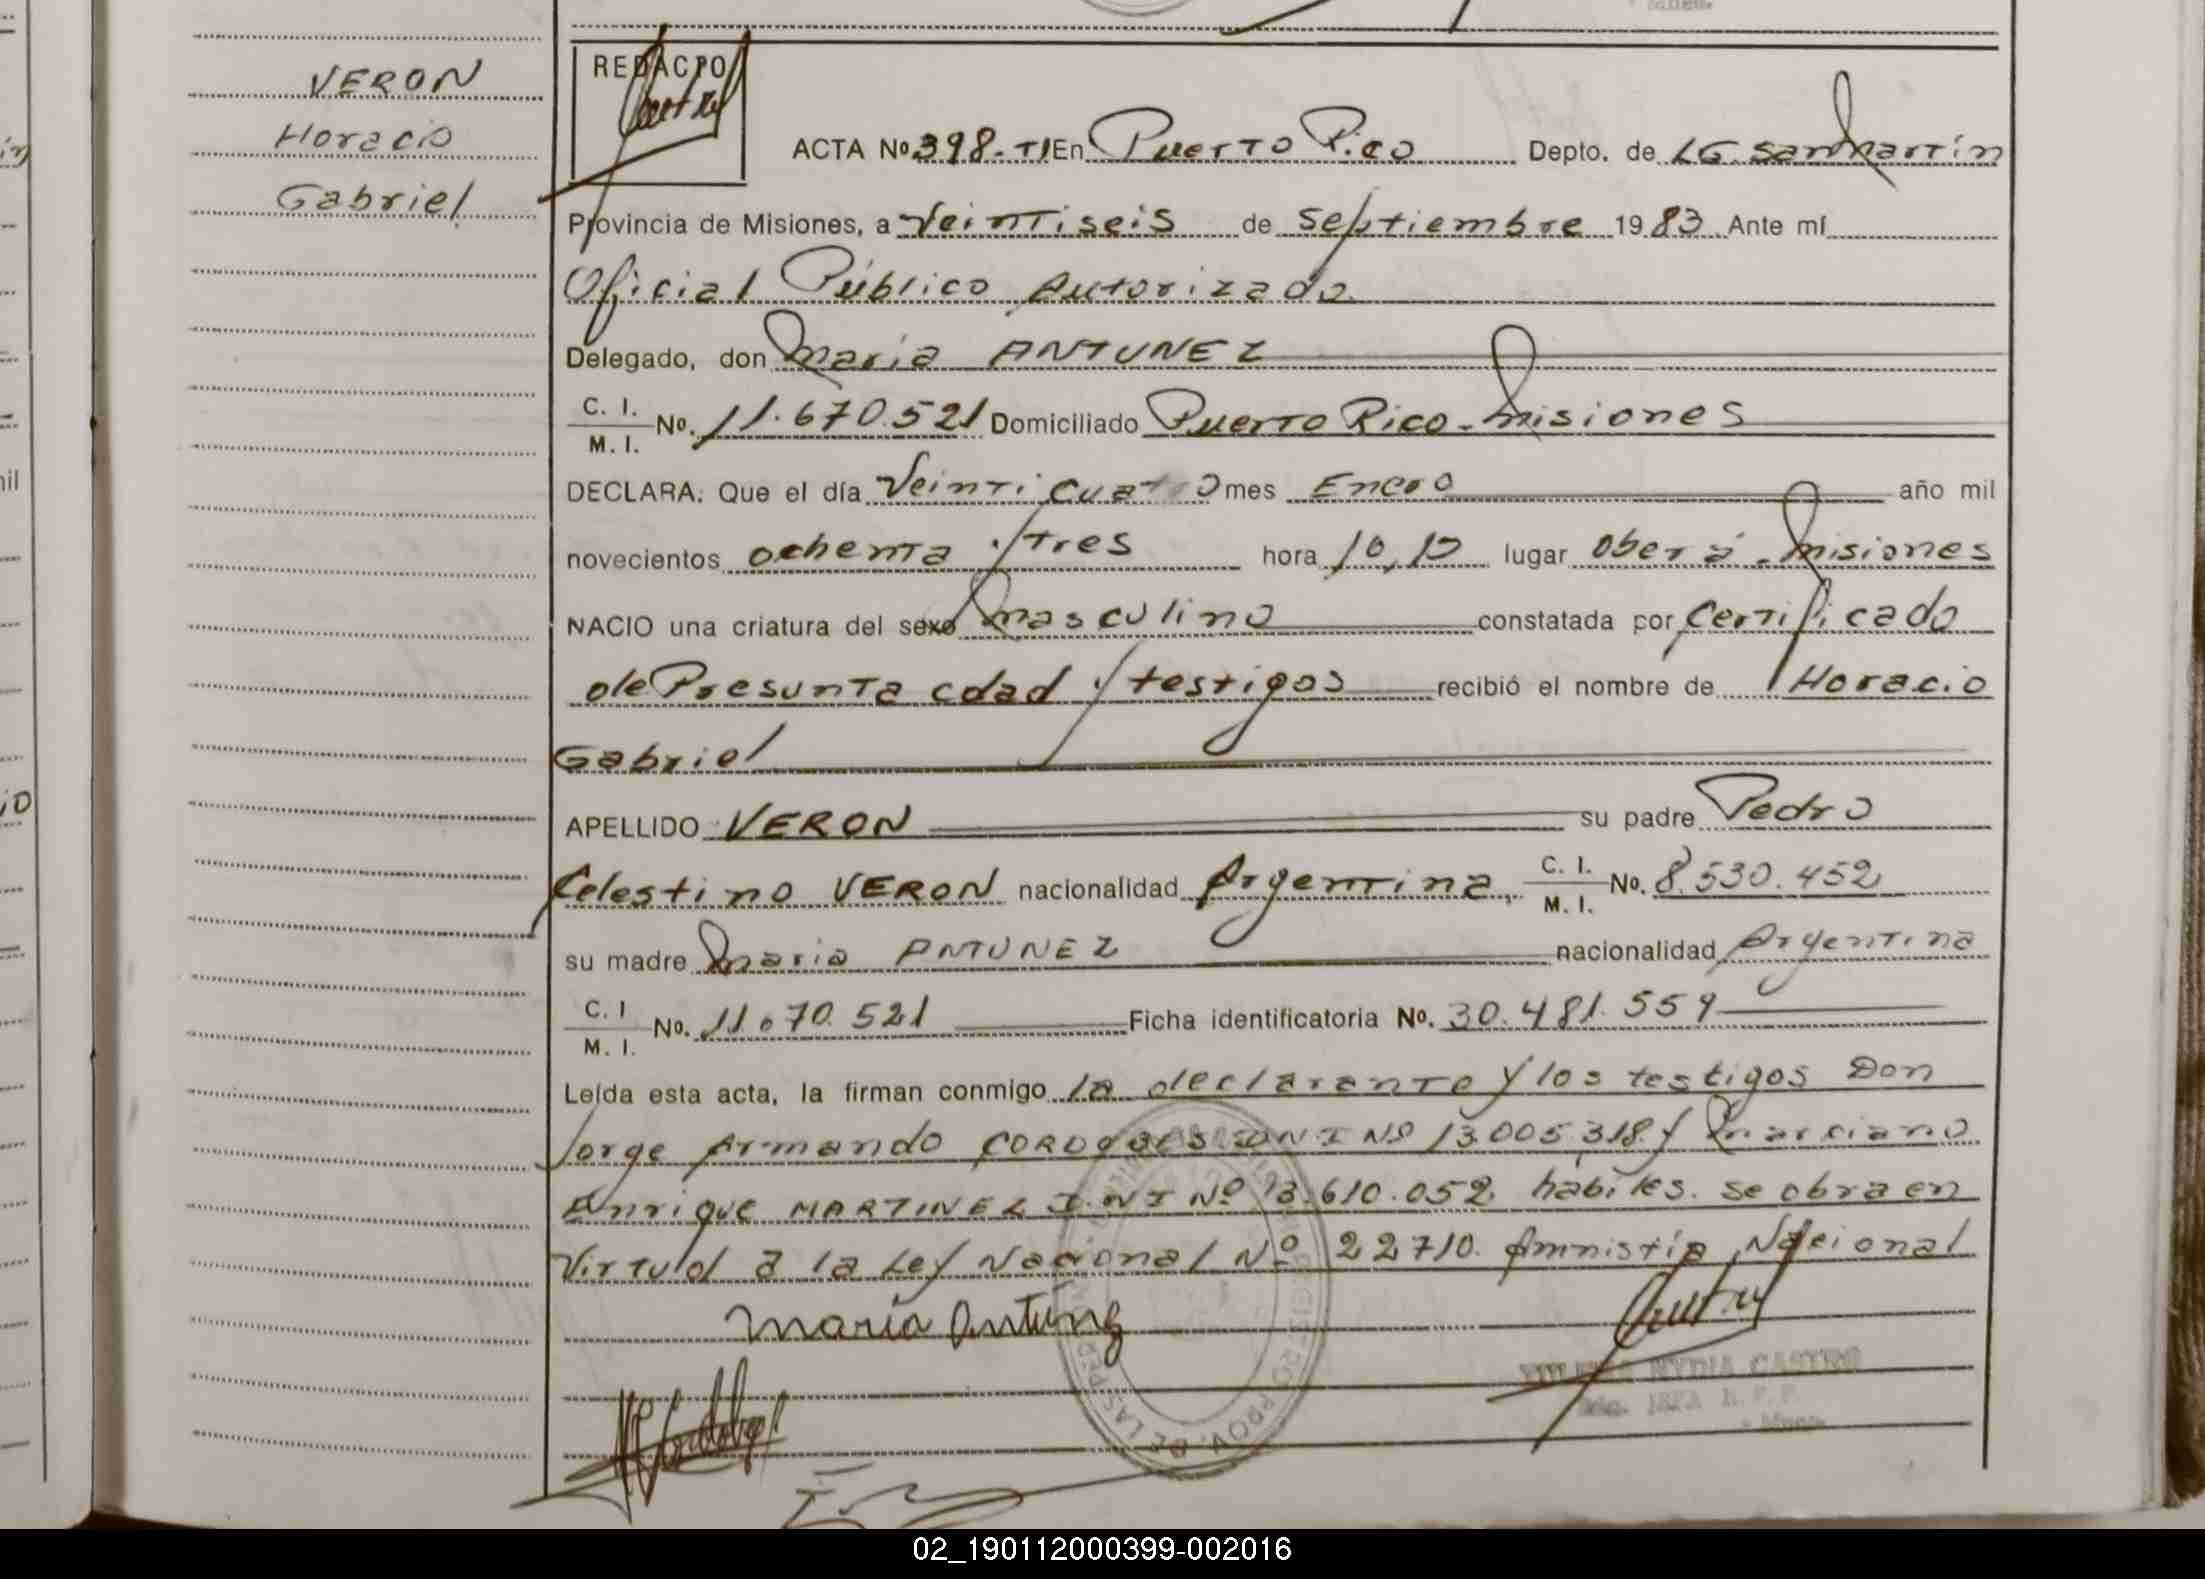 VERON
Horacio
Gabriel
REDACTO
ACTA No 398-TI En Puerto Rico Depto. de LG. San Martín
Provincia de Misiones, a Veintiseis de septiembre 1983 Ante mí
Oficial Público Autorizado
Delegado, don María ANTUNEZ
C. I. M. I. No. 11.670.521 Domiciliado Puerto Rico - Misiones
DECLARA: Que el día Veinticuatro mes Enero año mil
novecientos ochenta y tres hora 10,10 lugar Oberá - Misiones
NACIO una criatura del sexo masculino constatada por Certificado
de Presunta edad y testigos recibió el nombre de Horacio
Gabriel
APELLIDO VERON su padre Pedro
Celestino VERON nacionalidad Argentina, C. I. M. I. No. 8.530.452
su madre María ANTUNEZ nacionalidad Argentina
C. I M. I. No. 11.670.521 Ficha identificatoria No. 30.481.559
Leída esta acta, la firman conmigo la declarante y los testigos Don
Jorge Armando CORDOBES DNI Nº 13.005.318 y Marciano
Enrique MARTINEZ D.N.I Nº 13.610.052 hábiles. se obra en
Virtud a la Ley Nacional Nº 22710. Amnistía Nacional
María Antúnez
NYDIA CASTRO
02_190112000399-002016